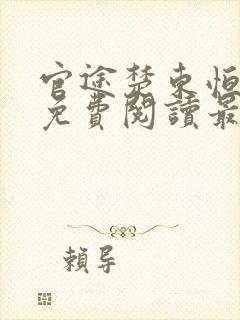 官途楚东恒
免費閱讀最
賴导